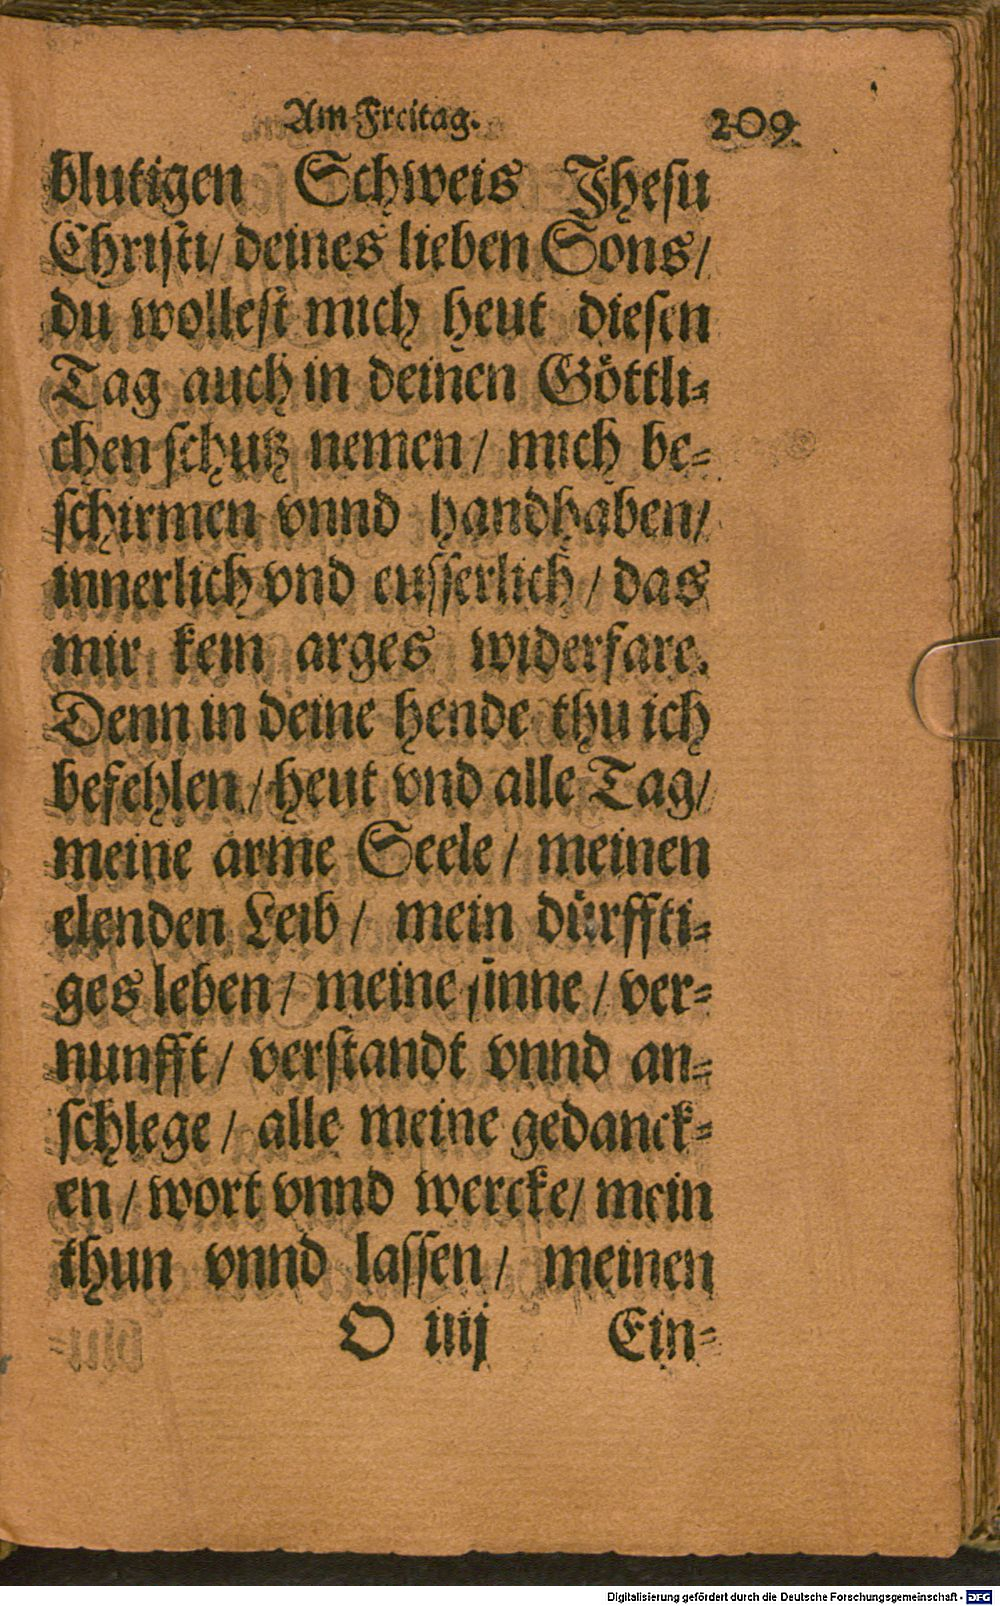 Am Freitag. 209
blutigen Schweis Jhesu
Christi/ deines lieben Sons/
du wollest mich heut diesen
Tag auch in deinen Göttli-
chen schutz nemen/ mich be-
schirmen vnnd handhaben/
innerlich vnd eusserlich/ das
mir kein arges widerfare.
Denn in deine hende thu ich
befehlen/ heut vnd alle Tag/
meine arme Seele/ meinen
elenden Leib/ mein dürffti-
ges leben/ meine sinne/ ver-
nunfft/ verstandt vnnd an-
schlege/ alle meine gedanck-
en/ wort vnnd wercke/ mein
thun vnnd lassen/ meinen
O iiij Ein-
Digitalisierung gefördert durch die Deutsche Forschungsgemeinschaft - DFG